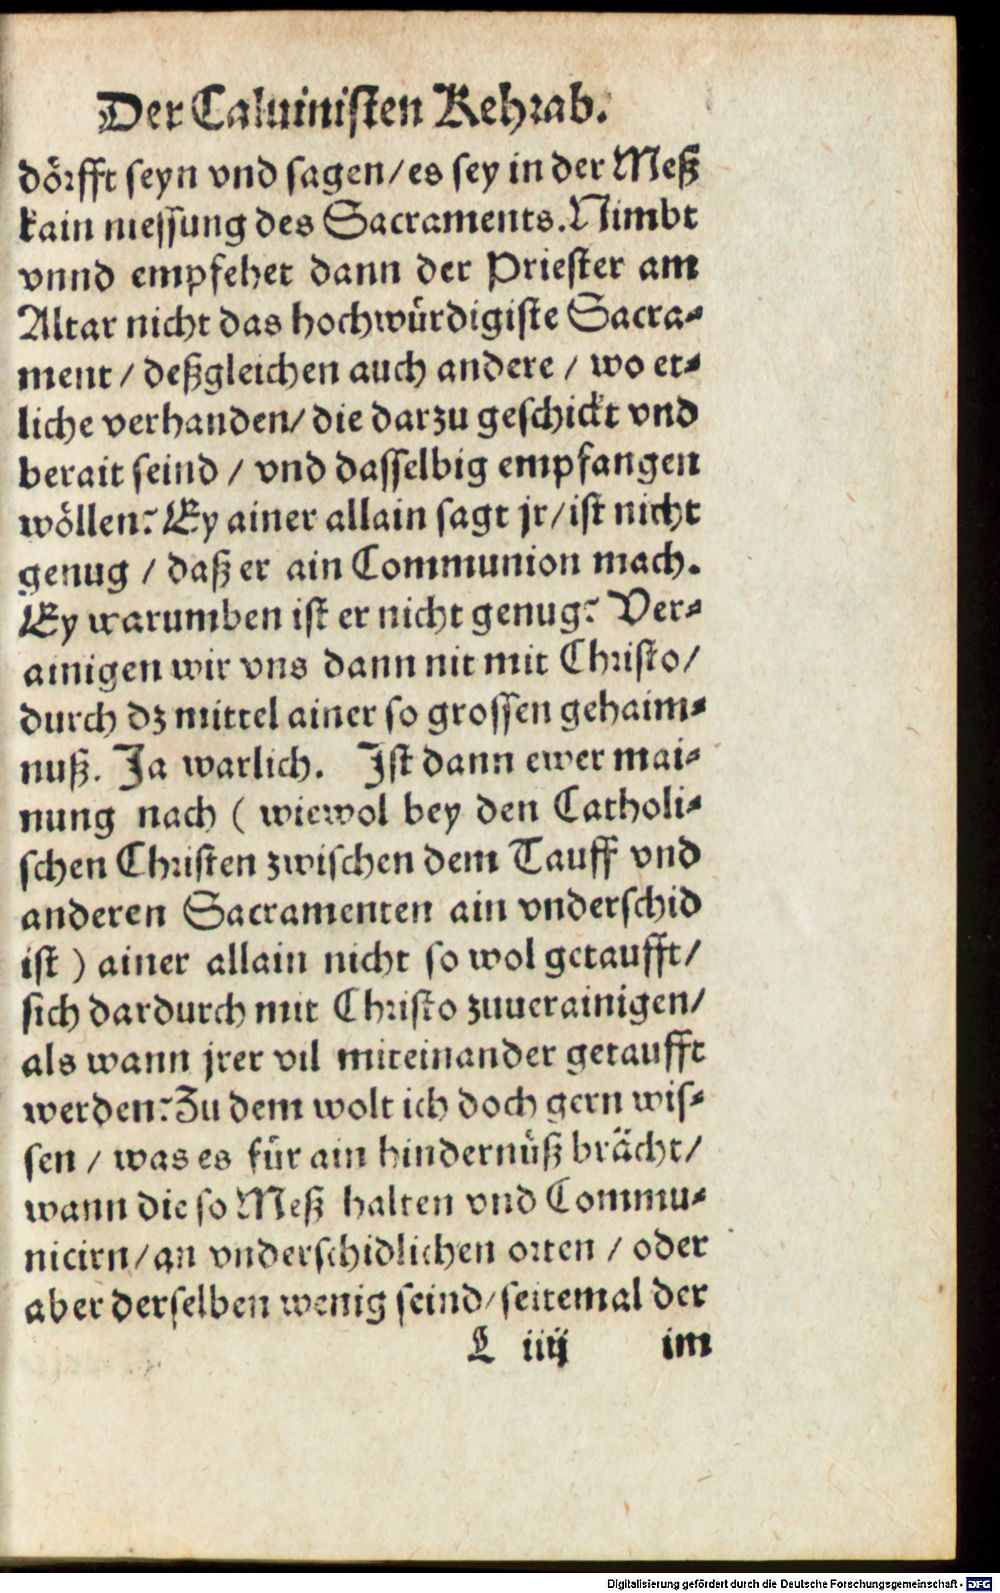 Der Caluinisten Kehrab.
dörfft seyn vnd sagen/es sey in der Meß
kain messung des Sacraments. Nimbt
vnnd empfehet dann der Priester am
Altar nicht das hochwürdigiste Sacra-
ment / deßgleichen auch andere / wo er-
liche verhanden/ die darzu geschickt vnd
berait seind / vnd dasselbig empfangen
wöllen? Ey ainer allain sagt jr/ist nicht
genug / daß er ain Communion mach.
Ey warumben ist er nicht genug? Ver-
ainigen wir vns dann nit mit Christo/
durch dz mittel ainer so grossen gehaim-
nuß. Ja warlich. Ist dann ewer mai-
nung nach ( wiewol bey den Catholi-
schen Christen zwischen dem Tauff vnd
anderen Sacramenten ain vnderschid
ist ) ainer allain nicht so wol getaufft/
sich dardurch mit Christo zuuerainigen/
als wann jrer vil miteinander getaufft
werden? Zu dem wolt ich doch gern wis-
sen / was es für ain hindernüß brächt/
wann die so Meß halten vnd Commu-
nicirn/an vnderschidlichen orten / oder
aber derselben wenig seind/seitemal der
L iiij im
Digitalisierung gefördert durch die Deutsche Forschungsgemeinschaft - DFG